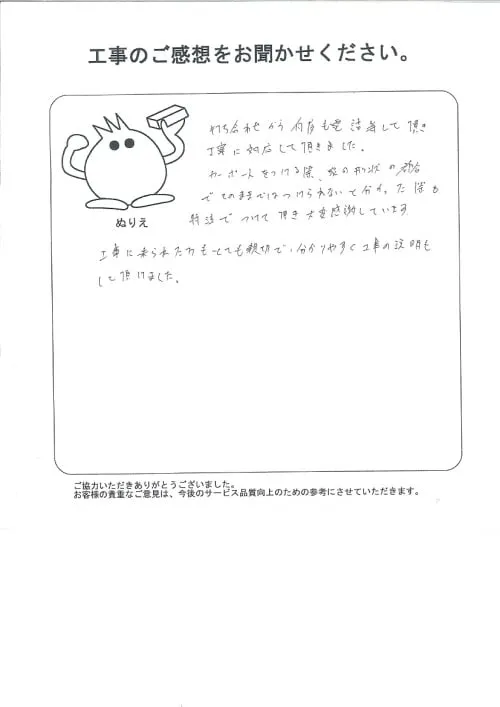 工事のご感想をお聞かせください。
打ち合わせから何度も電話等して頂き
丁寧に対応して頂きました。
カーポートをつける際、家の形状の都合
でそのままではつけられないと分かった際も
特注でつけて頂き大変感謝しています
ぬりえ
工事に来られた方もとても親切で、分かりやすく工事の説明も
して頂けました。
ご協力いただきありがとうございました。
お客様の貴重なご意見は、今後のサービス品質向上のための参考にさせていただきます。